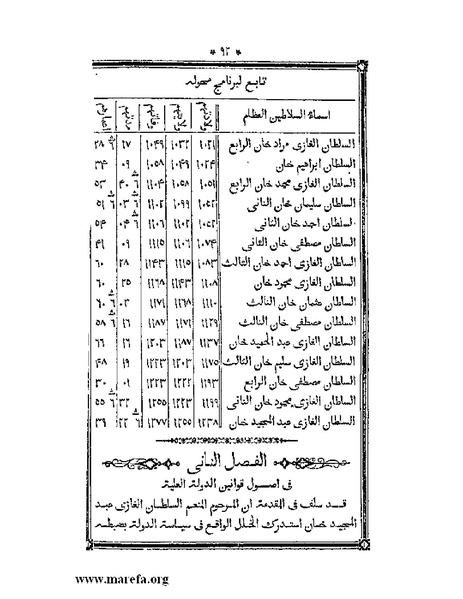 * ٩٢ *
تابع لبرنامج محوله
اسماء السلاطين العظام ولادتهم ولايتهم وفاتهم مدتهم اعمارهم
السلطان الغازى مراد خان الرابع ١٠٢١ ١٠٣٢ ١٠٤٩ ١٧ ٢٨
السلطان ابراهيم خان ١٠٢٤ ١٠٤٩ ١٠٥٨ ٠٩ ٣٤
السلطان الغازى محمد خان الرابع ١٠٥١ ١٠٥٨ ١١٠٤ ٤٠ ٦ ٥٣
السلطان سليمان خان الثانى ١٠٥٢ ١٠٩٩ ١١٠٢ ٠٣ ٦ ٥١
السلطان احمد خان الثانى ١٠٥٢ ١١٠٢ ١١٠٦ ٠٤ ٦ ٥٤
السلطان مصطفى خان الثانى ١٠٧٤ ١١٠٦ ١١١٥ ٠٩ ٤١
السلطان الغازى احمد خان الثالث ١٠٨٣ ١١١٥ ١١٤٣ ٢٨ ٦٠
السلطان الغازى محمود خان ١١٠٨ ١١٤٣ ١١٦٨ ٢٥ ٦٠
السلطان عثمان خان الثالث ١١١٠ ١١٦٨ ١١٧١ ٠٣ ٦٠
السلطان مصطفى خان الثالث ١١٢٩ ١١٧١ ١١٨٧ ١٦ ٥٨
السلطان الغازى عبد الحميد خان ١١٣٧ ١١٨٧ ١٢٠٣ ١٦ ٦٦
السلطان الغازى سليم خان الثالث ١١٧٥ ١٢٠٣ ١٢٢٣ ١٩ ٤٨
السلطان مصطفى خان الرابع ١١٩٣ ١٢٢٢ ١٢٢٣ ٠١ ٣٠
السلطان الغازى محمود خان الثانى ١١٩٩ ١٢٢٣ ١٢٥٥ ٣٢ ٦ ٥٥
السلطان الغازى عبد المجيد خان ١٢٣٨ ١٢٥٥ ١٢٧٧ ٢٢ ٦ ٣٩
الفصل الثانى
فى اصول قوانين الدولة العلية
قد سلف فى المقدمة ان المرحوم المنعم السلطان الغازى عبد
المجيد خان استدرك الخلل الواقع فى سياسة الدولة بضبطه
www.marefa.org